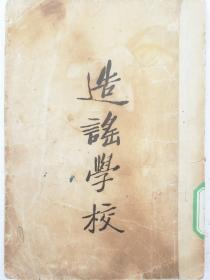 造謠學校